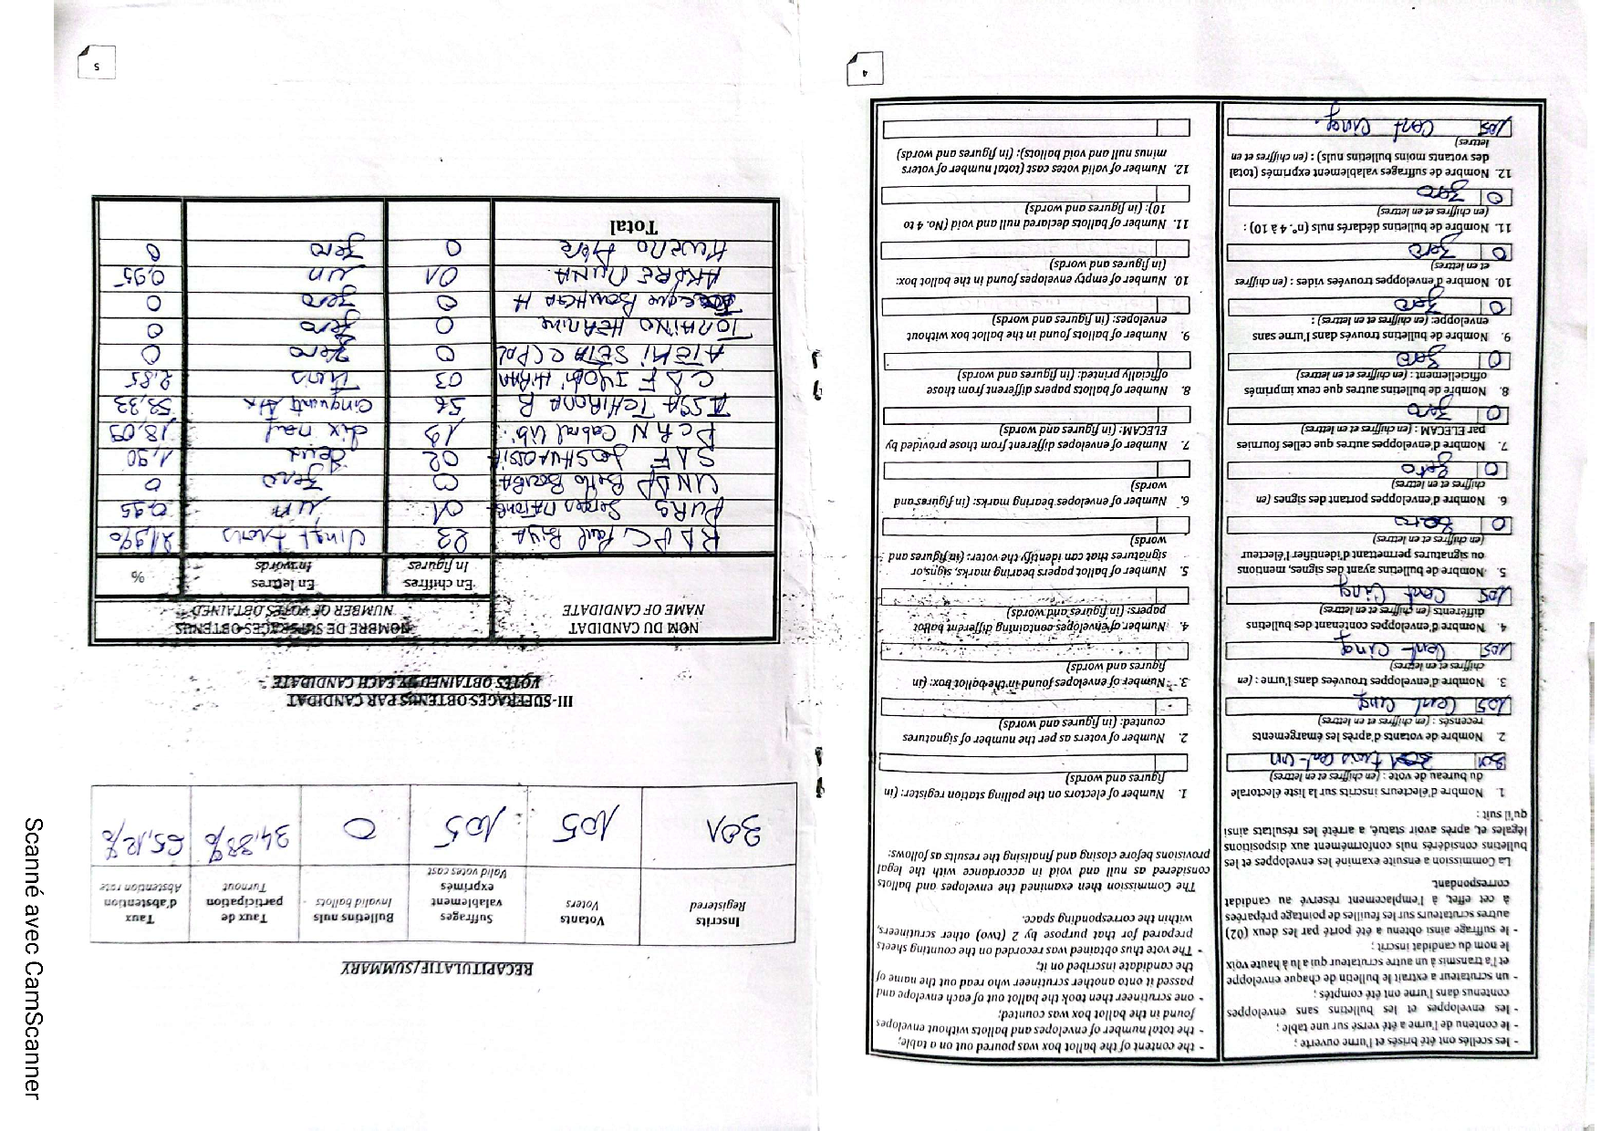 4
- les scellés ont été brisés et l'urne ouverte ;
- le contenu de l'urne a été versé sur une table ;
- les enveloppes et les bulletins sans enveloppes
contenus dans l'urne ont été comptés ;
- un scrutateur a extrait le bulletin de chaque enveloppe
et l'a transmis à un autre scrutateur qui a lu à haute voix
le nom du candidat inscrit ;
- le suffrage ainsi obtenu a été porté par les deux (02)
autres scrutateurs sur les feuilles de pointage préparées
à cet effet, à l'emplacement réservé au candidat
correspondant.
La Commission a ensuite examiné les enveloppes et les
bulletins considérés nuls conformément aux dispositions
légales et, après avoir statué, a arrêté les résultats ainsi
qu'il suit :
1. Nombre d'électeurs inscrits sur la liste électorale
du bureau de vote : (en chiffres et en lettres)
301 trois cent-un
2. Nombre de votants d'après les émargements
recensés : (en chiffres et en lettres)
105 Cent Cinq
3. Nombre d'enveloppes trouvées dans l'urne : (en
chiffres et en lettres)
105 Cent-Cinq
4. Nombre d'enveloppes contenant des bulletins
différents (en chiffres et en lettres)
105 Cent Cinq
5. Nombre de bulletins ayant des signes, mentions
ou signatures permettant d'identifier l'électeur
(en chiffres et en lettres)
0 zero
6. Nombre d'enveloppes portant des signes (en
chiffres et en lettres)
0 zero
7. Nombre d'enveloppes autres que celles fournies
par ELECAM : (en chiffres et en lettres)
0 zero
8. Nombre de bulletins autres que ceux imprimés
officiellement : (en chiffres et en lettres)
0 zero
9. Nombre de bulletins trouvés dans l'urne sans
enveloppe: (en chiffres et en lettres) :
0 zero
10. Nombre d'enveloppes trouvées vides : (en chiffres
et en lettres)
0 zero
11. Nombre de bulletins déclarés nuls (n°. 4 à 10) :
(en chiffres et en lettres)
0 zero
12. Nombre de suffrages valablement exprimés (total
des votants moins bulletins nuls) : (en chiffres et en
lettres)
105 Cent Cinq.
- the content of the ballot box was poured out on a table;
- the total number of envelopes and ballots without envelopes
found in the ballot box was counted;
- one scrutineer then took the ballot out of each envelope and
passed it onto another scrutineer who read out the name of
the candidate inscribed on it;
- The vote thus obtained was recorded on the counting sheets
prepared for that purpose by 2 (two) other scrutineers,
within the corresponding space.
The Commission then examined the envelopes and ballots
considered as null and void in accordance with the legal
provisions before closing and finalising the results as follows:
1. Number of electors on the polling station register: (in
figures and words)
2. Number of voters as per the number of signatures
counted: (in figures and words)
3. Number of envelopes found in the ballot box: (in
figures and words)
4. Number of envelopes containing different ballot
papers: (in figures and words)
5. Number of ballot papers bearing marks, signs, or
signatures that can identify the voter: (in figures and
words)
6. Number of envelopes bearing marks: (in figures and
words)
7. Number of envelopes different from those provided by
ELECAM: (in figures and words)
8. Number of ballots papers different from those
officially printed: (in figures and words)
9. Number of ballots found in the ballot box without
envelopes: (in figures and words)
10. Number of empty envelopes found in the ballot box:
(in figures and words)
11. Number of ballots declared null and void (No. 4 to
10): (in figures and words)
12. Number of valid votes cast (total number of voters
minus null and void ballots): (in figures and words)
5
RECAPITULATIF/SUMMARY
Inscrits Registered | Votants Voters | Suffrages valablement exprimés Valid votes cast | Bulletins nuls Invalid ballots | Taux de participation Turnout | Taux d'abstention Abstention rate
301 | 105 | 105 | 0 | 34,88% | 65,12%
III-SUFFRAGES OBTENUS PAR CANDIDAT
VOTES OBTAINED BY EACH CANDIDATE
NOM DU CANDIDAT
NAME OF CANDIDATE
NOMBRE DE SUFFRAGES OBTENUS
NUMBER OF VOTES OBTAINED
En chiffres In figures | En lettres In words | %
RDPC Paul Biya | 23 | Vingt trois | 21,90
PURS Serges MATOMB | 01 | un | 0,95
UNDP Bello Bouba | 00 | zero | 0
SDF JOSHUA OSSIH | 02 | deux | 1,90
PCRN Cabral Libi | 19 | dix neuf | 18,09
ISSA TCHIROMA B | 56 | Cinquant six | 53,33
CDF IYODI HIRAM | 03 | Trois | 2,85
ATEKI SETA C (PAL | 0 | zero | 0
TOMAINO HERMINE | 0 | zero | 0
BOUHGA H | 0 | zero | 0
AKERE MUNA | 01 | un | 0,95
KWEMO Pierre | 0 | zero | 0
Total
Scanné avec CamScanner